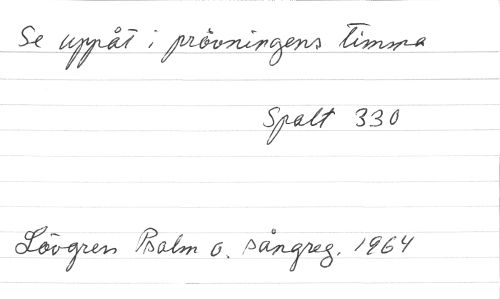 Se uppåt i prövningens timma
Spalt 330
Lövgren Psalm o. sångreg. 1964